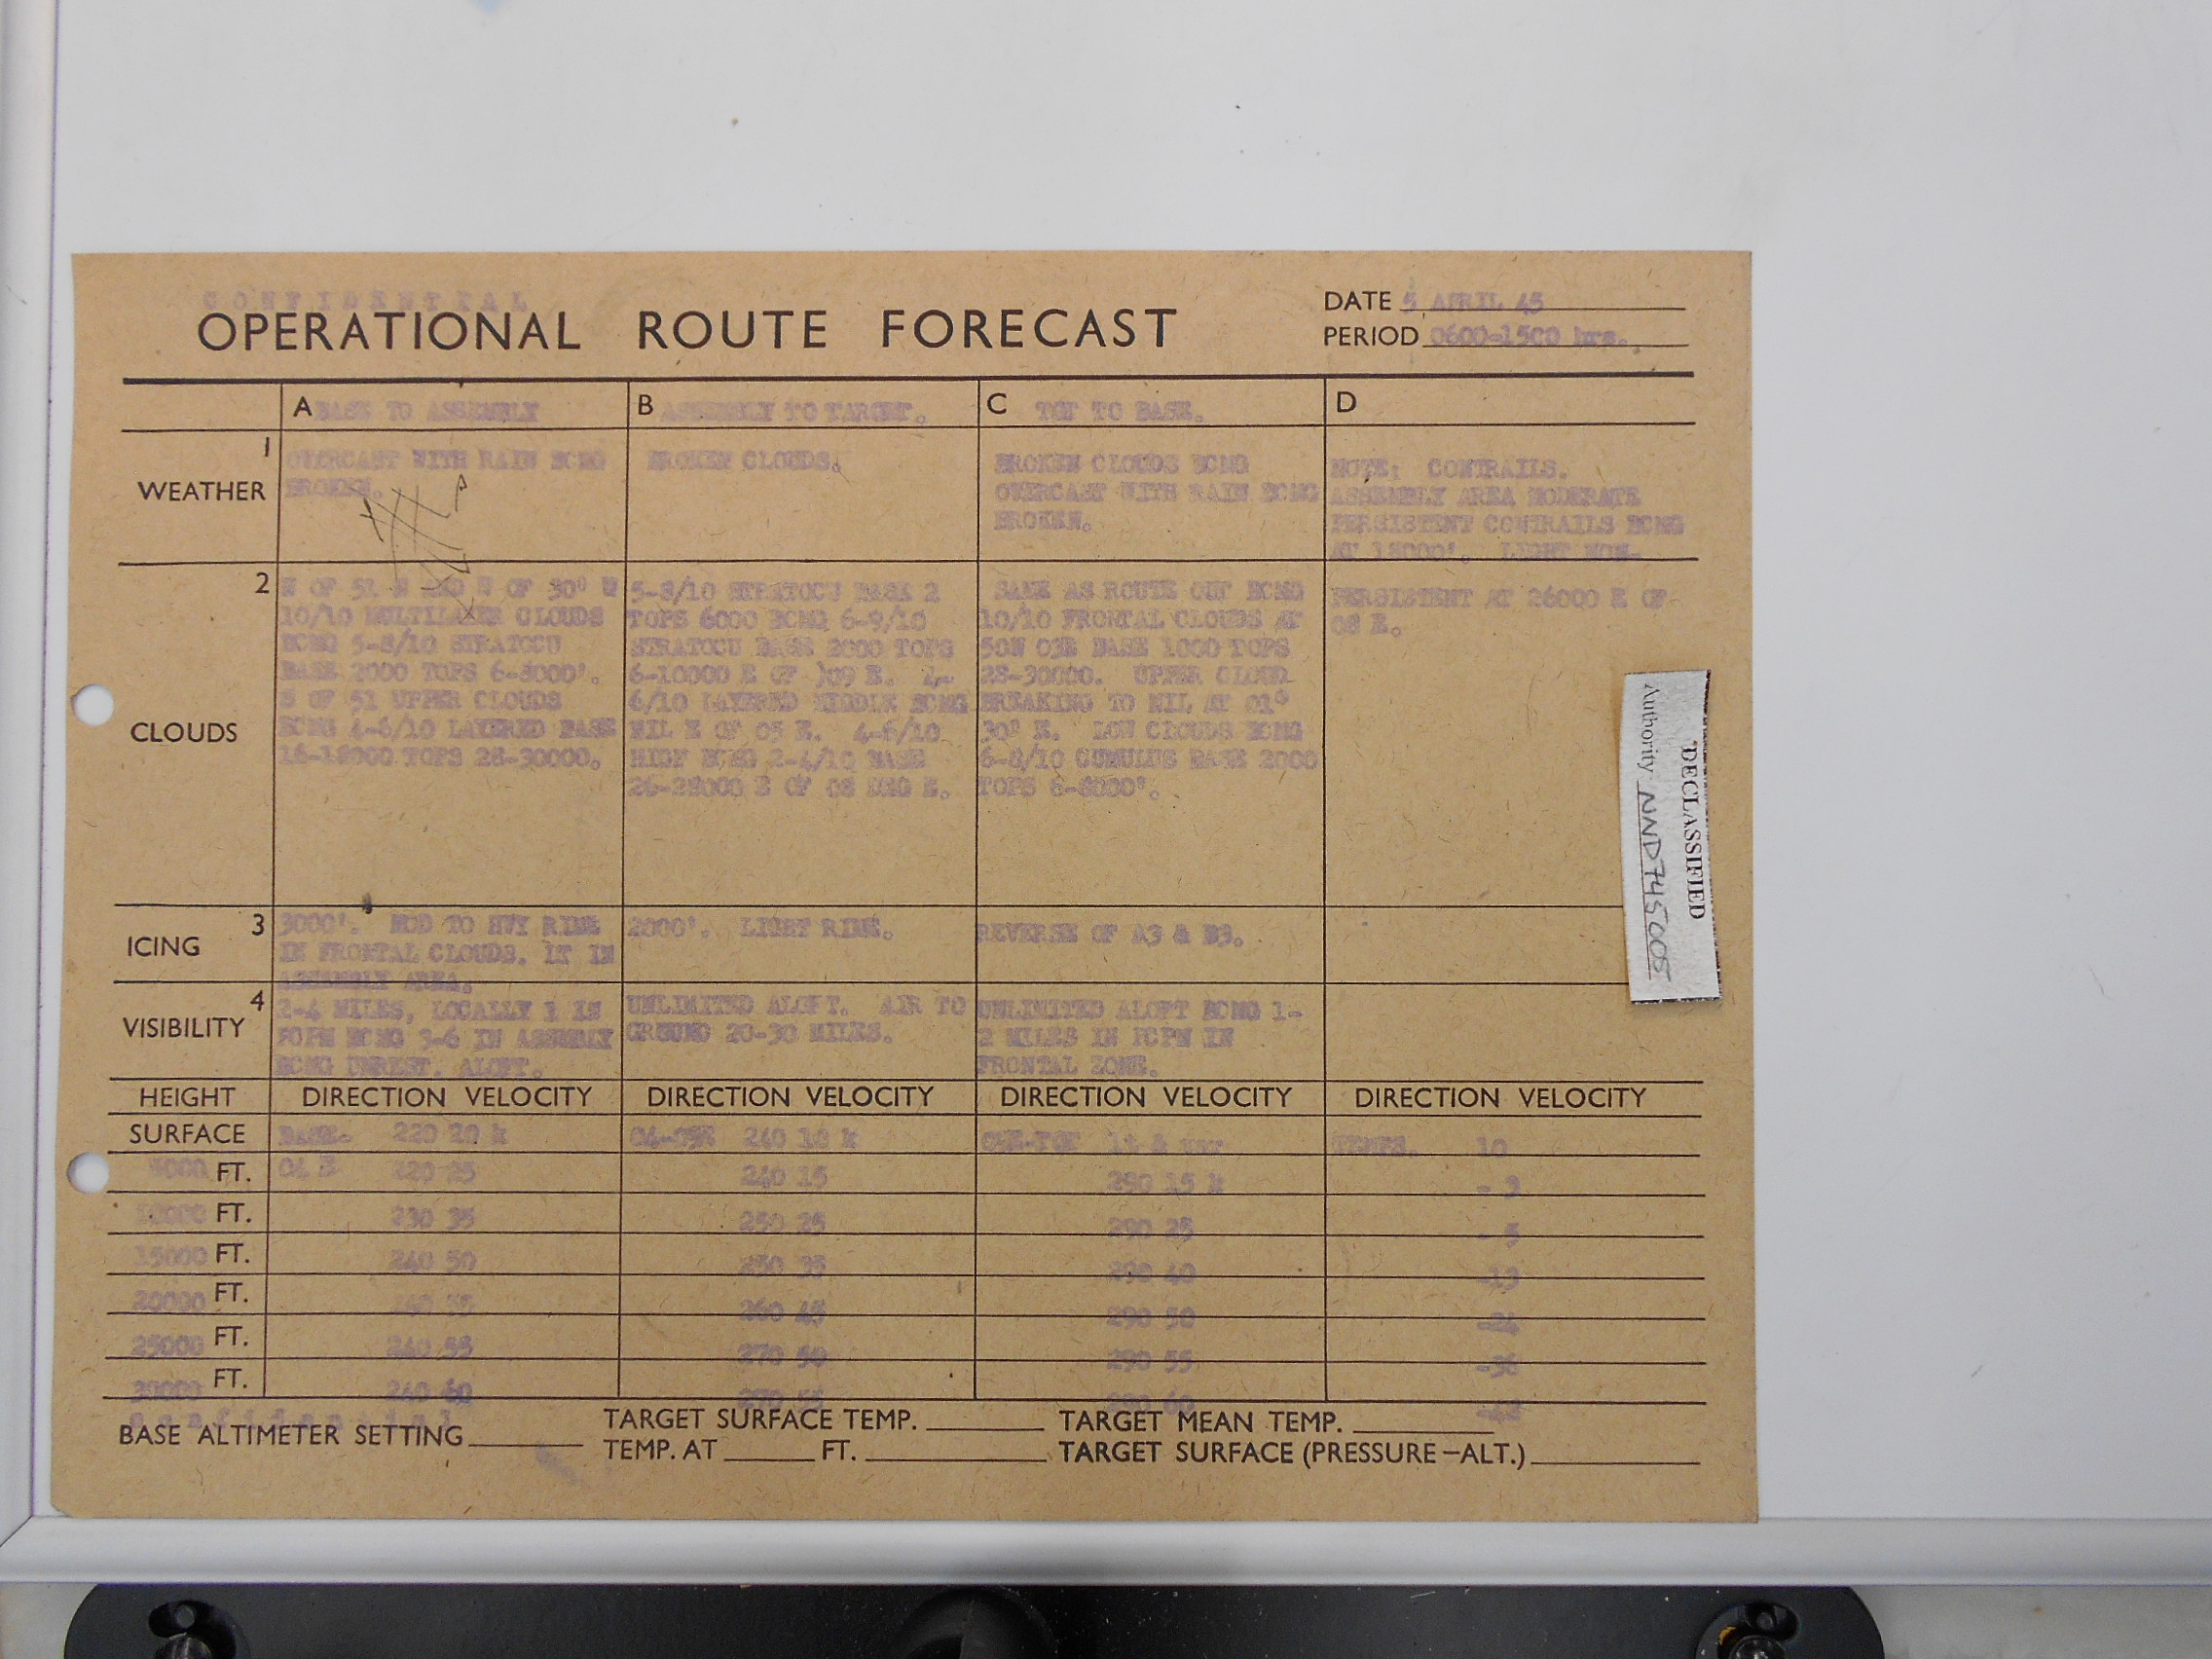 CONFIDENTIAL
OPERATIONAL ROUTE FORECAST
DATE 5 APRIL 45
PERIOD 0600-1500 hrs.
A BASE TO ASSEMBLY
B ASSEMBLY TO TARGET.
C TGT TO BASE.
D
1
WEATHER
OVERCAST WITH RAIN BCMG
BROKEN.
BROKEN CLOUDS.
BROKEN CLOUDS BCMG
OVERCAST WITH RAIN BCMG
BROKEN.
NOTE: CONTRAILS.
ASSEMBLY AREA MODERATE
PERSISTENT CONTRAILS BCMG
AT 18000'. LIGHT NON-
2
CLOUDS
OF 51 N AND OF 30' W
10/10 MULTILAYER CLOUDS
BCMG 5-8/10 STRATOCU
BASE 2000 TOPS 6-8000'.
S OF 51 UPPER CLOUDS
BCMG 4-6/10 LAYERED BASE
16-18000 TOPS 28-30000.
5-8/10 STRATOCU BASE 2
TOPS 6000 BCMG 6-9/10
STRATOCU BASE 2000 TOPS
6-10000 E OF 09 E. 4-
6/10 LAYERED MIDDLE BCMG
NIL E OF 05 E. 4-6/10
HIGH BCMG 2-4/10 BASE
26-28000 E OF 08 DEG E.
SAME AS ROUTE OUT BCMG
10/10 FRONTAL CLOUDS AT
50N 03E BASE 1000 TOPS
28-30000. UPPER CLOUD
BREAKING TO NIL AT 01°
30' E. LOW CLOUDS BCMG
6-8/10 CUMULUS BASE 2000
TOPS 6-8000'.
PERSISTENT AT 26000 E OF
08 E.
3
ICING
3000'. MOD TO HVY RIME
IN FRONTAL CLOUDS. LT IN
ASSEMBLY AREA.
2000'. LIGHT RIME.
REVERSE OF A3 & B3.
4
VISIBILITY
2-4 MILES, LOCALLY 1 IN
PCPN BCMG 3-6 IN ASSEMBLY
BCMG UNREST. ALOFT.
UNLIMITED ALOFT. AIR TO
GROUND 20-30 MILES.
UNLIMITED ALOFT BCMG 1-
2 MILES IN PCPN IN
FRONTAL ZONE.
HEIGHT DIRECTION VELOCITY DIRECTION VELOCITY DIRECTION VELOCITY DIRECTION VELOCITY
SURFACE BASE- 220 20 k 04-09E 240 10 k 09E-TGT lt & var TEMPS. 10
FT. 04 E 220 25 240 15 290 15 k
FT. 230 35 250 25 290 25 - 5
15000 FT. 240 50 250 35 290 40 -13
20000 FT. 260 45 290 50 -24
25000 FT. 240 55 270 50 290 55 -36
30000 FT. 240 60 270 55 290 60
confidential
BASE ALTIMETER SETTING
TARGET SURFACE TEMP.
TARGET MEAN TEMP.
TEMP. AT FT.
TARGET SURFACE (PRESSURE-ALT.)
DECLASSIFIED
Authority NND745005